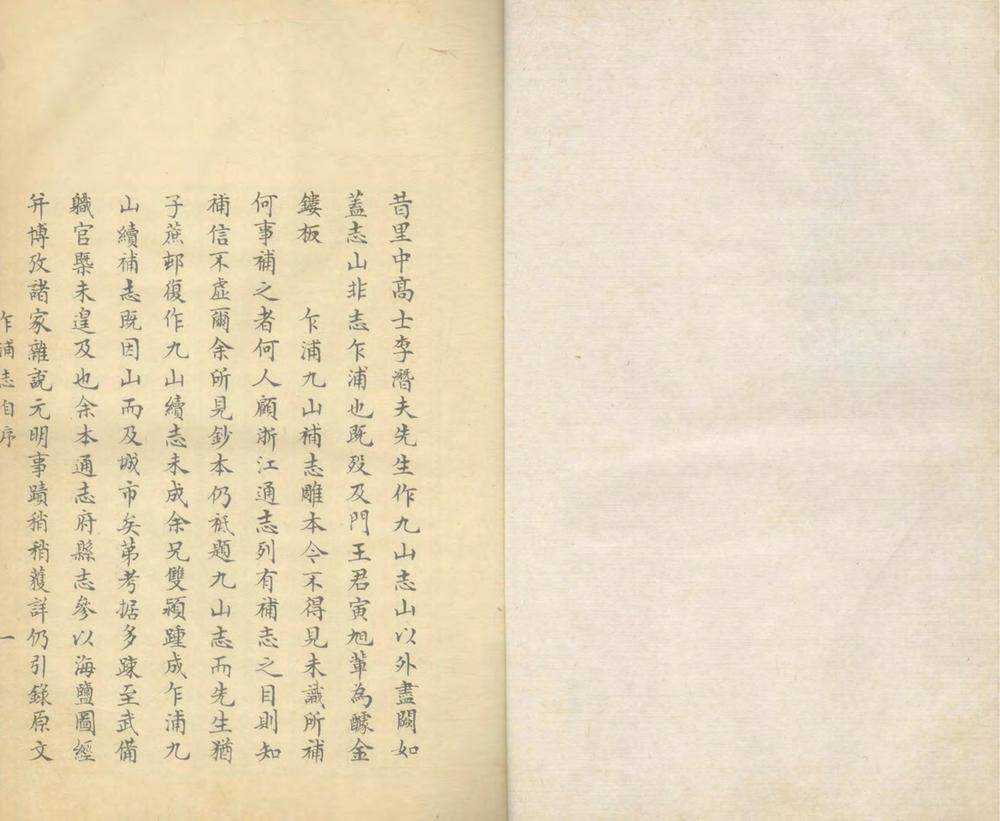 昔里中高士李潛夫先生作九山志山以外盡闕如
蓋志山非志乍浦也既歿及門王君寅旭輩為醵金
鏤板　　乍浦九山補志雕本今不得見未識所補
何事補之者何人顧浙江通志列有補志之目則知
補信不虛爾余所見鈔本仍祗題九山志而先生猶
子蔗邨復作九山續志未成余兄雙穎踵成乍浦九
山續補志既因山而及城市矣苐考据多踈至武備
軄官槩未遑及也余本通志府縣志參以海鹽圖經
并博攷諸家雜說元明事蹟稍稍蒦詳仍引錄原文
乍浦志自序　一